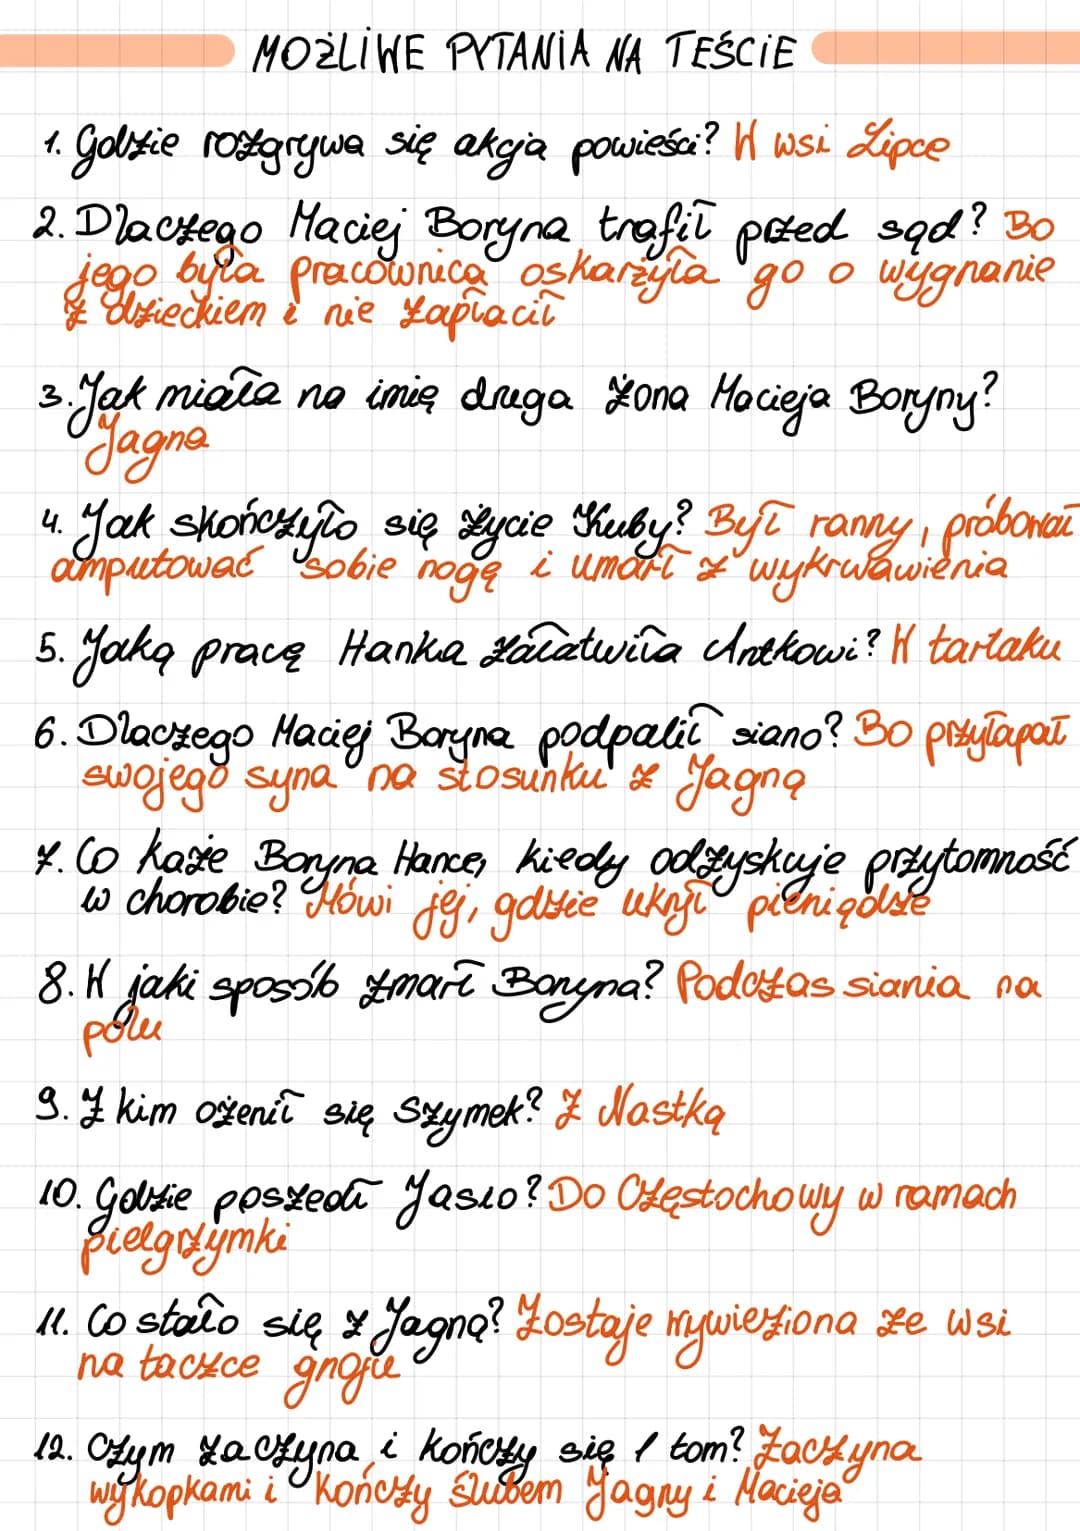 MOŻLIWE PYTANIA NA TEŚCIE
1. Gdzie rozgrywa się akcja powieści? W wsi Lipce
2. Dlaczego Maciej Boryna trafił przed sąd? Bo
jego była pracownica oskarżyła go o wygnanie
z dzieckiem i nie zapłacił
3. Jak miała na imię druga żona Macieja Boryny?
Jagna
4. Jak skończyło się życie Kuby? Był ranny, próbował
amputować sobie nogę i umarł z wykrwawienia
5. Jaką pracę Hanka załatwiła Antkowi? W tartaku
6. Dlaczego Maciej Boryna podpalił siano? Bo przyłapał
swojego syna na stosunku z Jagną
7. Co każe Boryna Hance, kiedy odzyskuje przytomność
w chorobie? Mówi jej, gdzie ukrył pieniądze
8. W jaki sposób zmarł Boryna? Podczas siania na
polu
9. Z kim ożenił się Szymek? Z Nastką
10. Gdzie poszedł Jasio? Do Częstochowy w ramach
pielgrzymki
11. Co stało się z Jagną? Zostaje wywieziona ze wsi
na taczce gnoju
12. Czym zaczyna i kończy się 1 tom? Zaczyna
wykopkami i kończy ślubem Jagny i Macieja